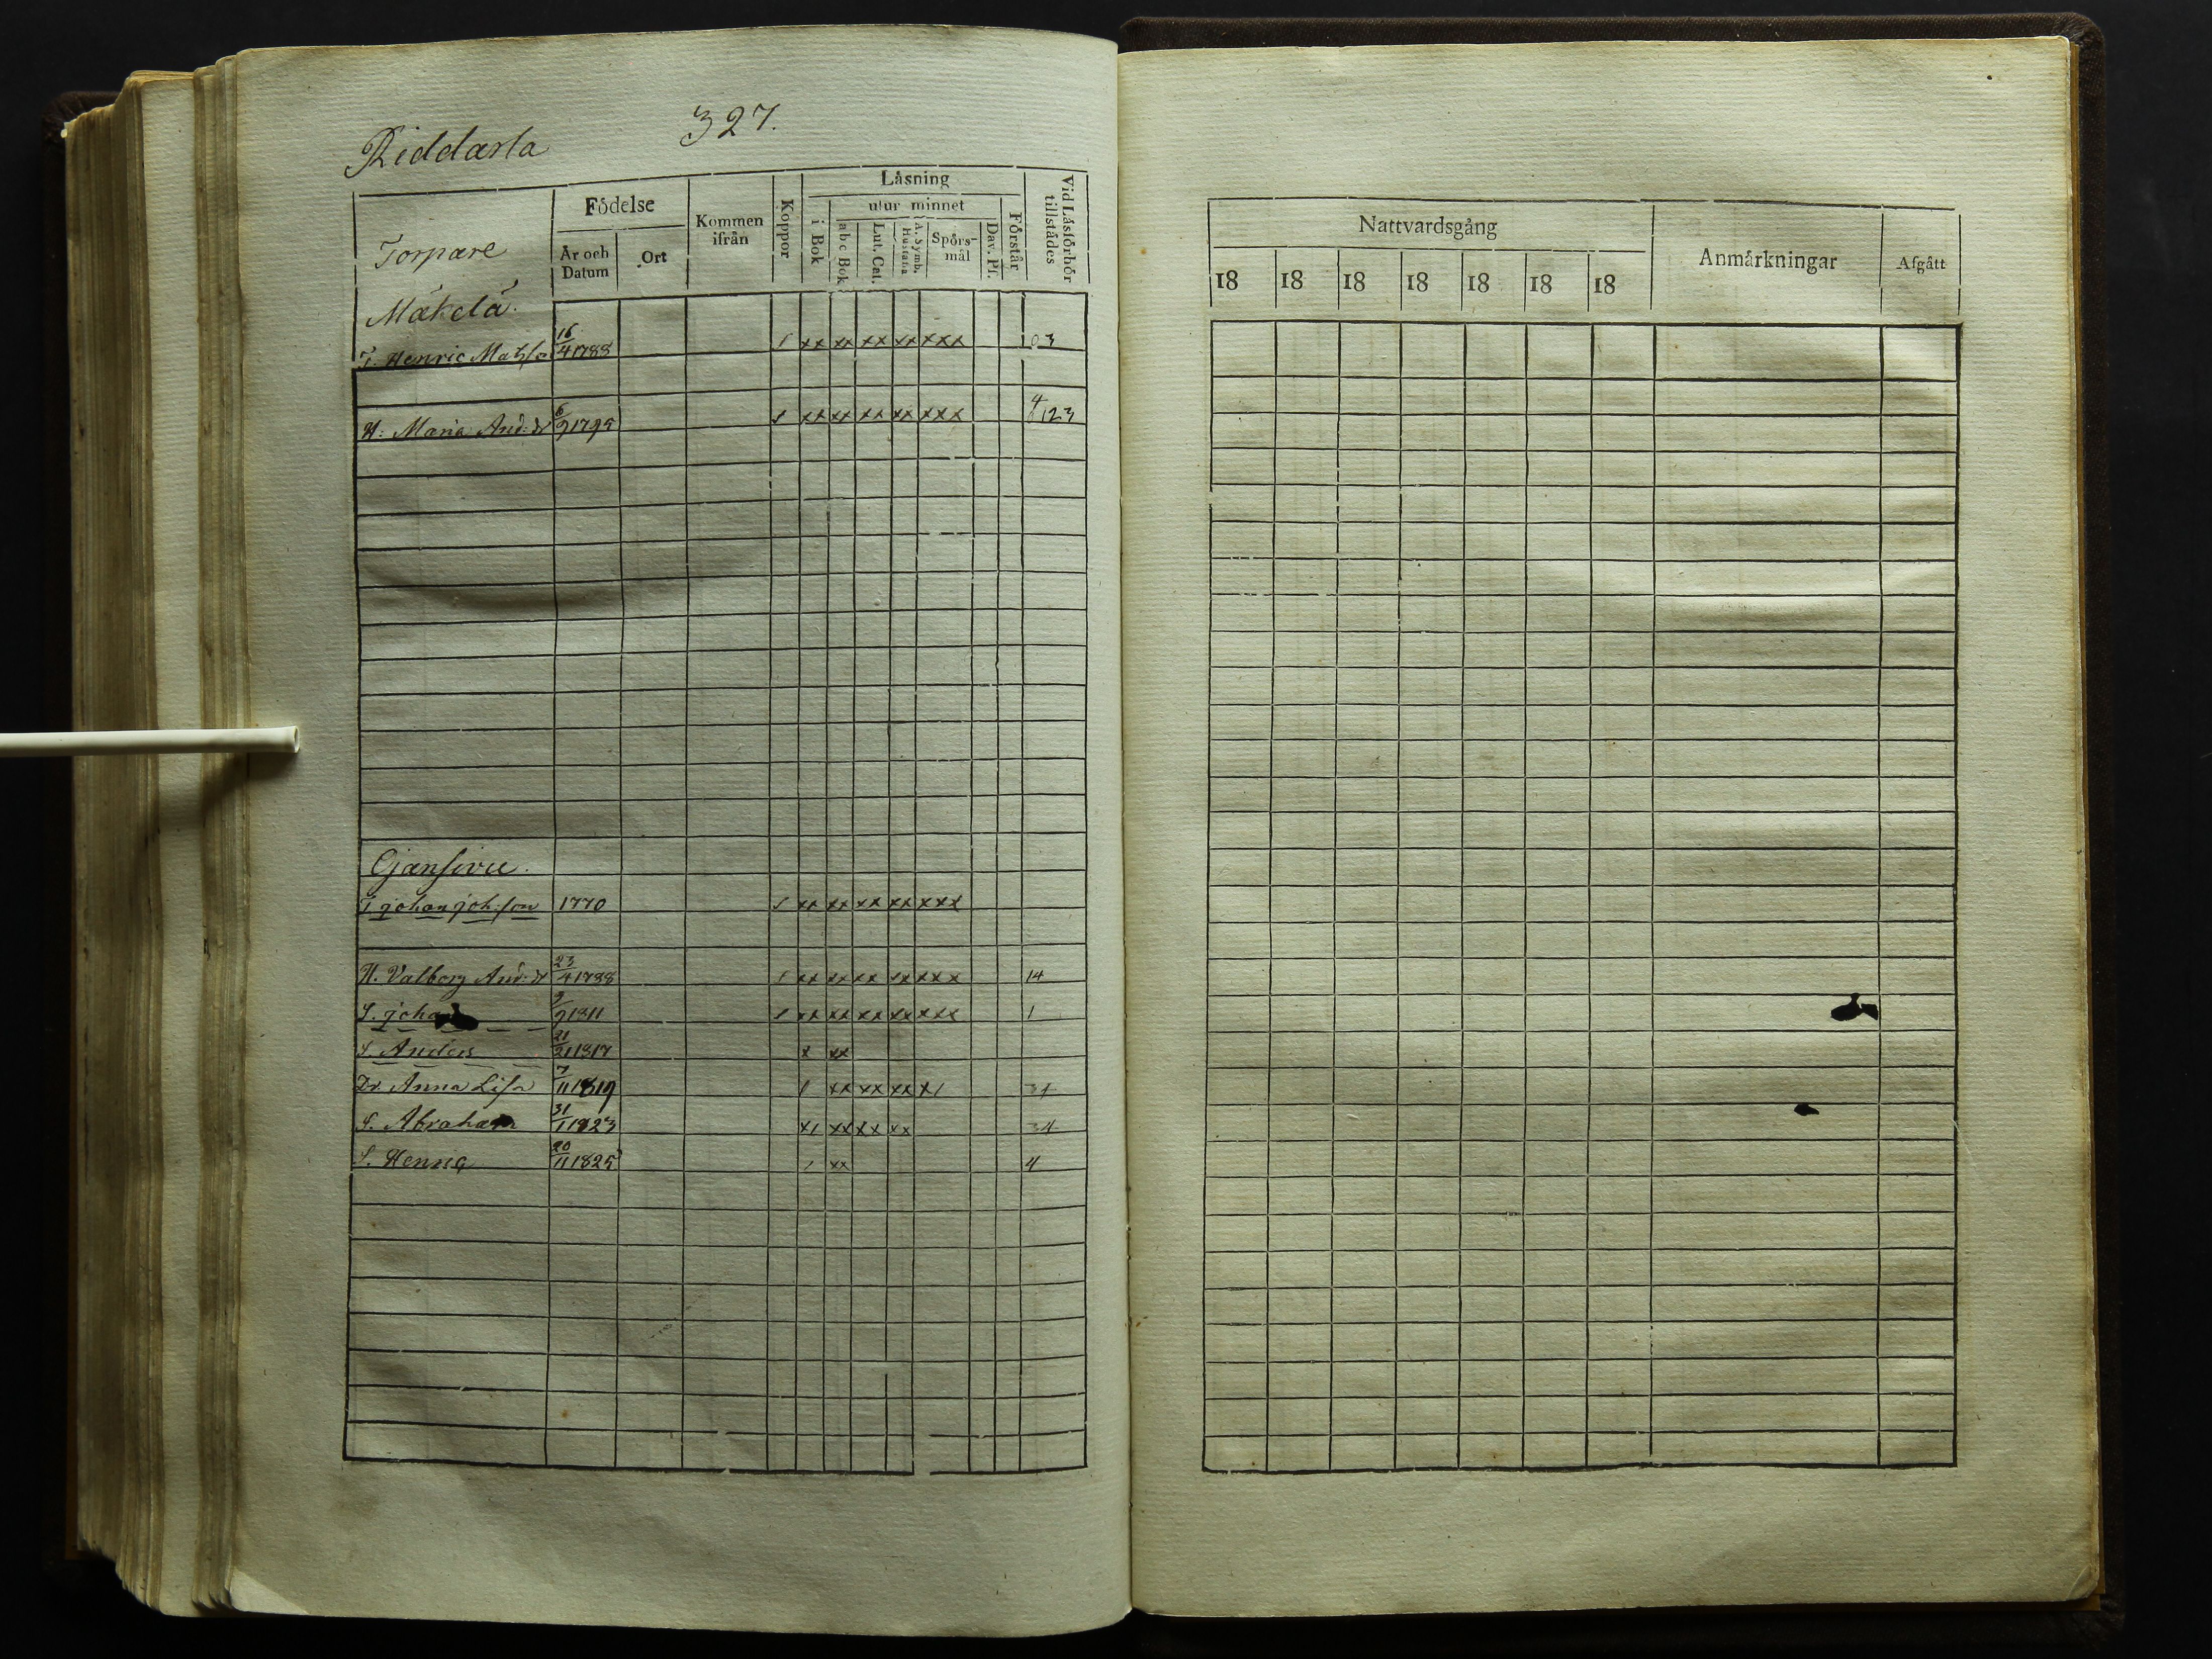 327.
Riddarla
Torpare
Födelse
År och Datum
Ort
Kommen ifrån
Koppor
Läsning
i Bok
utur minnet
abc Bok
Lut. Cat.
A. Symb. Hustafla
Spörsmål
Dav. Ps.
Förstår
Vid Läsförhör tillstädes
Mäkelä.
T. Henric Mats/so 16/4 1788 / xx xx xx xx xxx 03
H. Maria And: dr 6/9 1795 / xx xx xx xx xxx 4 123
Ojansivu.
T johan joh: son 1770 / xx xx xx xx xxx
H. Valborg And: dr 23/4 1788 / xx xx xx xx xxx 14
S. johan 9/9 1811 / xx xx xx xx xxx 1
S. Anders 21/21 1817 x xx
Dr. Anna Lisa 7/11 1819 / xx xx xx x/ 34
S. Abraham 31/1 1823 x/ xx xx xx 34
S. Henric 20/11 1825 / xx 4
Nattvardsgång
18 18 18 18 18 18 18
Anmärkningar
Afgått